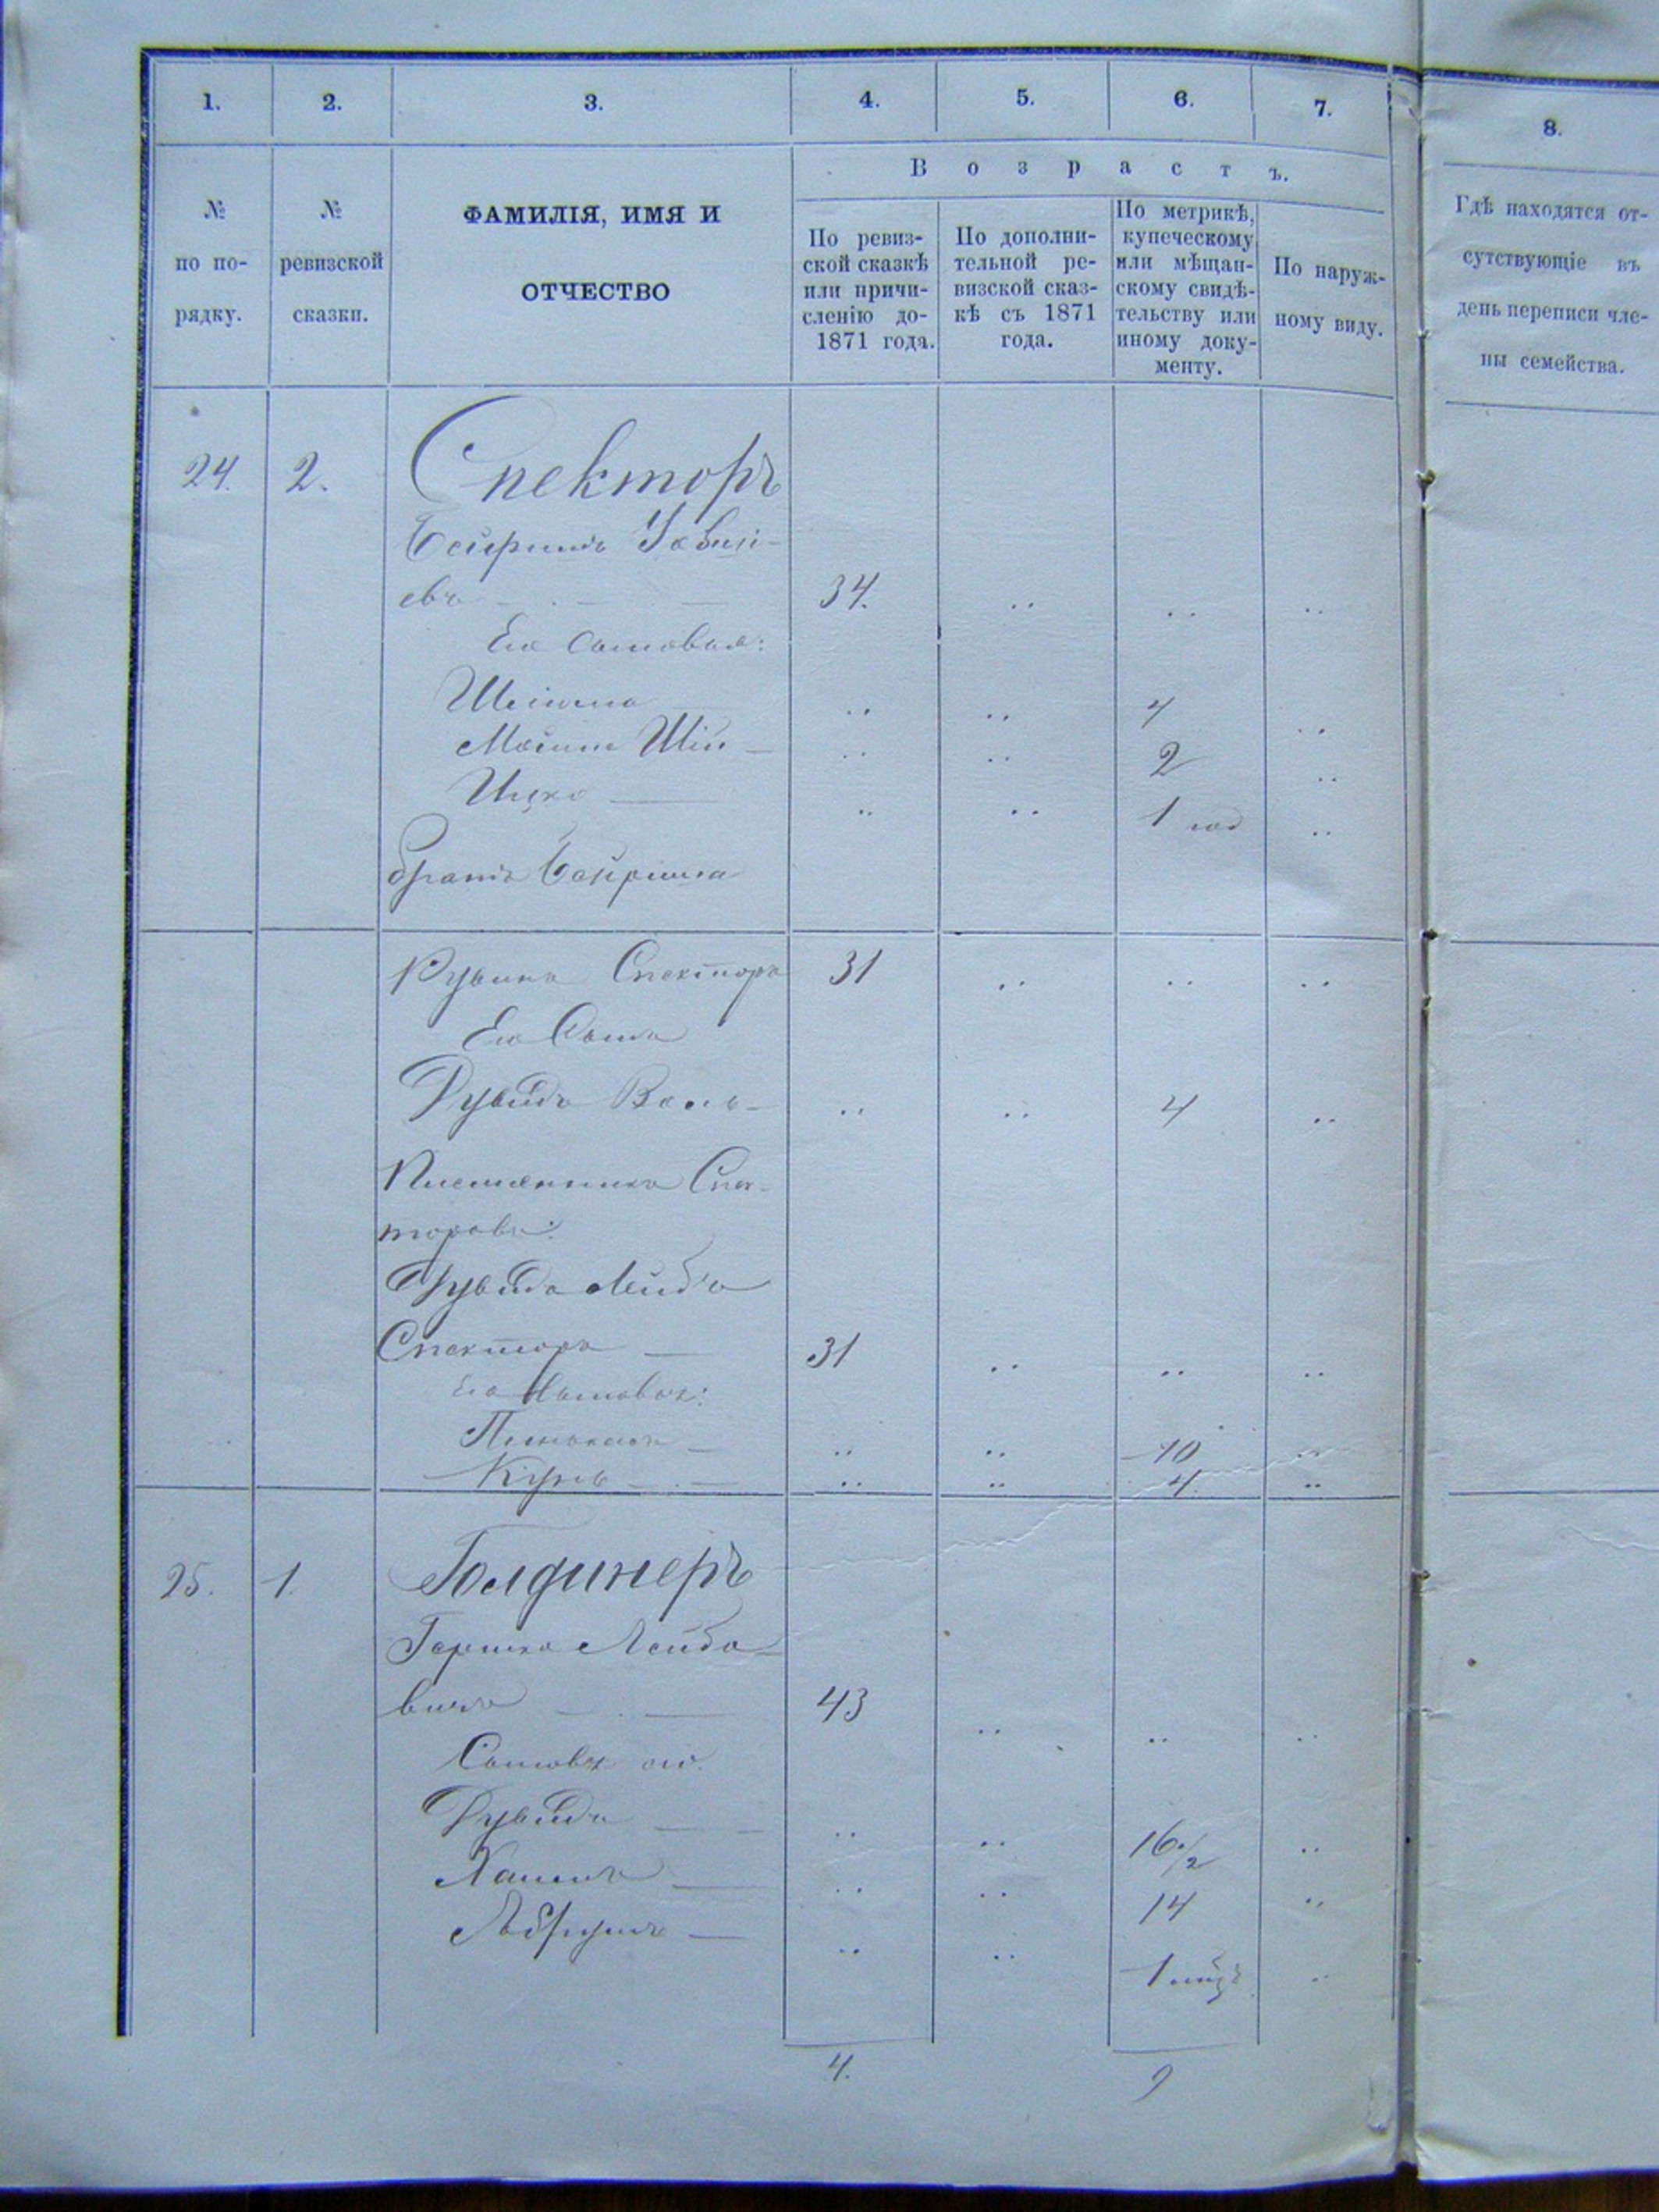 1. 2. 3. 4. 5. 6. 7. 8.
Возрастъ.
№ по по-рядку.
№ ревизской сказки.
ФАМИЛІЯ, ИМЯ И
ОТЧЕСТВО
По ревиз-
ской сказкѣ
или причи-
сленію до-
1871 года.
По дополни-
тельной ре-
визской сказ-
кѣ съ 1871
года.
По метрикѣ,
купеческому
или мѣщан-
скому свидѣ-
тельству или
иному доку-
менту.
По наруж-
ному виду.
Гдѣ находятся от-
сутствующіе въ
день переписи чле-
ны семейства.
24. 2. Спекторъ
евъ 34.
Его сыновья:
4
Мошко 2
Ицко 1 год
братъ
Рувинъ Спекторъ 31
Его Сынъ
4
Племянникъ Спек-
торовъ:
Лейба
Спекторъ 31
Его сыновья:
10
4.
25. 1. Голдинеръ
Гершко Лейбо-
вичъ 43
Сыновья его.
16 1/2
Хаимъ 14
1 мѣсц
4. 9